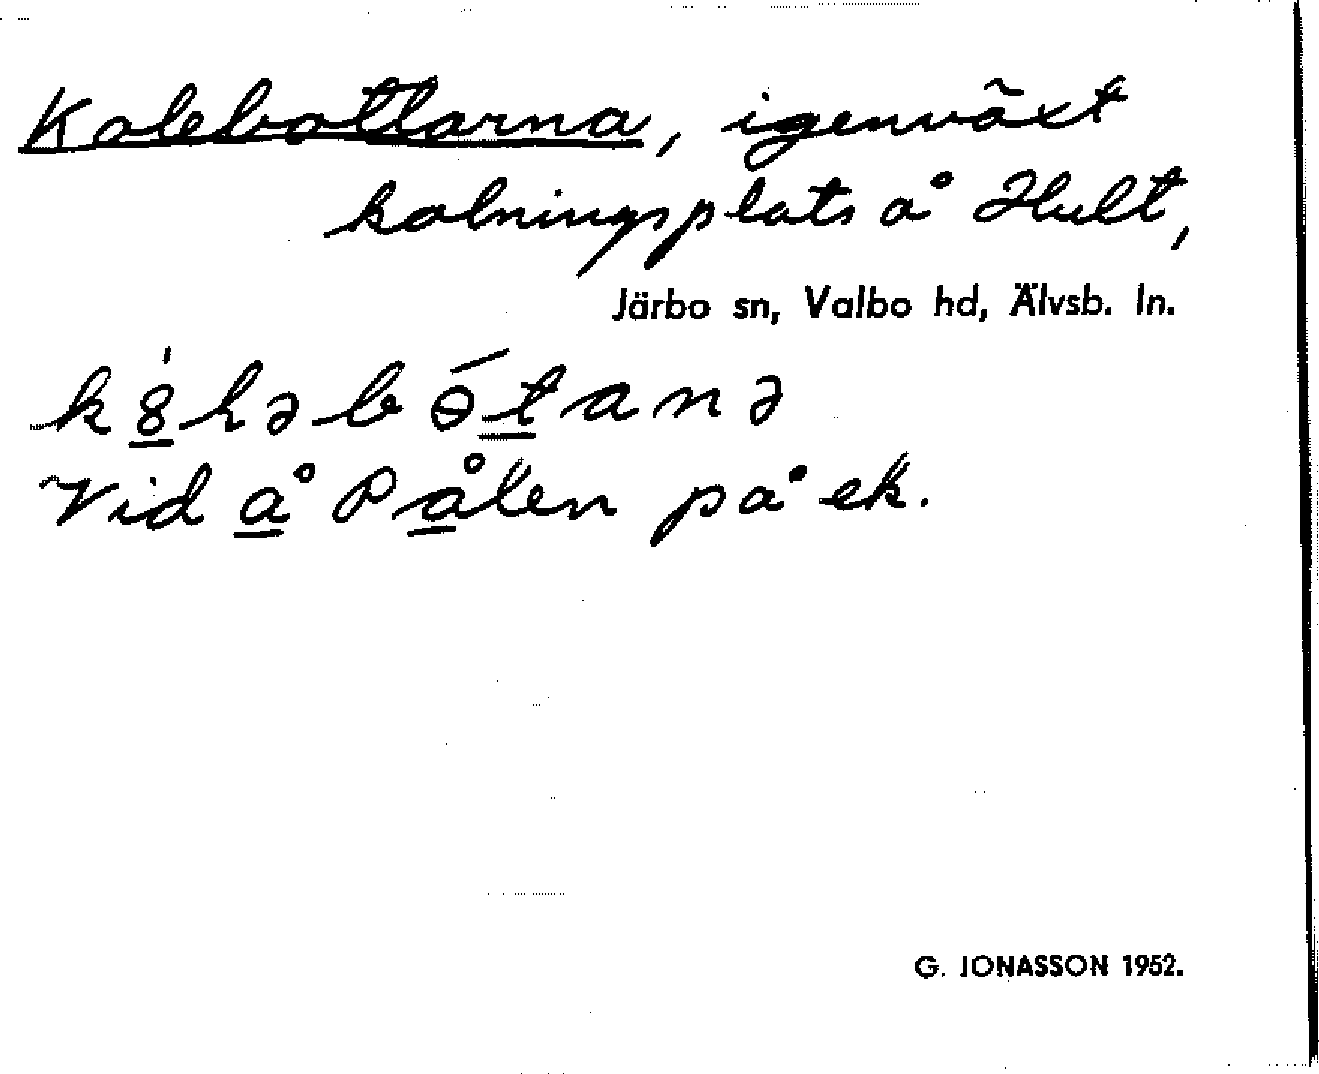 Kolebottarna, igenväxt
kolningsplats å Hult,
Järbo sn, Valbo hd, Älvsb. ln.
Vid å Pålen på ek.
G. JONASSON 1952.